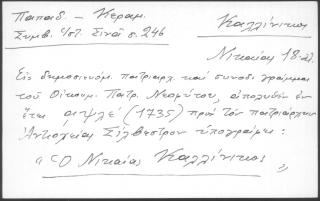 Παπαδ. - Κεραμ. Καλλίνικος
Συμβ. ἱστ. Σινᾶ σ. 246
Νικαίας 18 αἰ.
Εἰς δημοσιευόμ. πατριαρχ. καὶ συνοδ. γράμμα
τοῦ Οἰκουμ. Πατρ. Νεοφύτου, ἀπολυθὲν ἐν
ἔτει αψλέ (1735) πρὸς τὸν πατριάρχην
Ἀντιοχείας Σίλβεστρον ὑπογράφει:
"Ὁ Νικαίας Καλλίνικος"